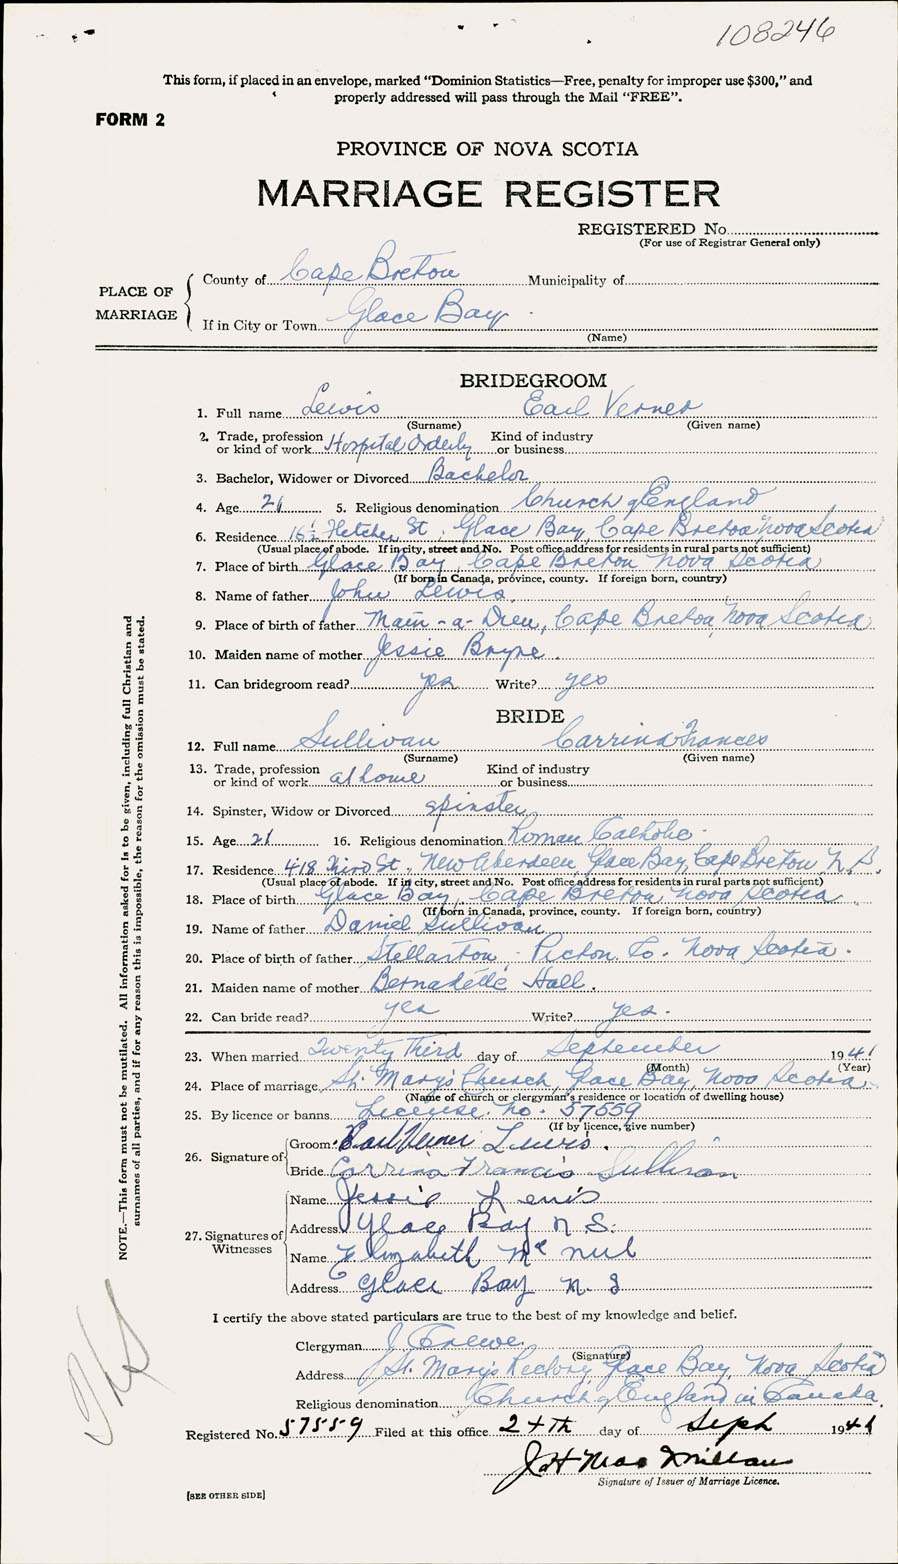 108246
This form, if placed in an envelope, marked “Dominion Statistics—Free, penalty for improper use $300,” and
properly addressed will pass through the Mail “FREE”.
FORM 2
PROVINCE OF NOVA SCOTIA
MARRIAGE REGISTER
REGISTERED No.
(For use of Registrar General only)
PLACE OF MARRIAGE
County of Cape Breton Municipality of
If in City or Town Glace Bay
(Name)
BRIDEGROOM
1. Full name Lewis Earl Verner
(Surname) (Given name)
2. Trade, profession or kind of work Hospital Orderly Kind of industry or business
3. Bachelor, Widower or Divorced Bachelor
4. Age 21 5. Religious denomination Church of England
6. Residence 16½ Fletcher St, Glace Bay, Cape Breton Nova Scotia
(Usual place of abode. If in city, street and No. Post office address for residents in rural parts not sufficient)
7. Place of birth Glace Bay, Cape Breton Nova Scotia
(If born in Canada, province, county. If foreign born, country)
8. Name of father John Lewis
9. Place of birth of father Main-a-Dieu, Cape Breton, Nova Scotia
10. Maiden name of mother Jessie Bryne.
11. Can bridegroom read? yes Write? yes
BRIDE
12. Full name Sullivan Carrina Frances
(Surname) (Given name)
13. Trade, profession or kind of work at home Kind of industry or business
14. Spinster, Widow or Divorced spinster
15. Age 21 16. Religious denomination Roman Catholic
17. Residence 418 Third St, New Aberdeen, Glace Bay, Cape Breton N.S.
(Usual place of abode. If in city, street and No. Post office address for residents in rural parts not sufficient)
18. Place of birth Glace Bay, Cape Breton Nova Scotia
(If born in Canada, province, county. If foreign born, country)
19. Name of father Daniel Sullivan
20. Place of birth of father Stellarton - Pictou Co. Nova Scotia.
21. Maiden name of mother Bernadette Hall.
22. Can bride read? yes Write? yes.
23. When married Twenty Third day of September 1941
(Month) (Year)
24. Place of marriage St. Mary's Church, Glace Bay, Nova Scotia
(Name of church or clergyman's residence or location of dwelling house)
25. By licence or banns License. No. 57559
(If by licence, give number)
26. Signature of
Groom Earl Verner Lewis.
Bride Carrina Francis Sullivan
27. Signatures of Witnesses
Name Jessie Lewis
Address Glace Bay N S.
Name Elizabeth
Address Glace Bay N. S
I certify the above stated particulars are true to the best of my knowledge and belief.
Clergyman
(Signature)
Address St. Mary's Rectory, Glace Bay, Nova Scotia
Religious denomination Church of England in Canada
Registered No. 57559 Filed at this office 24th day of Sept 1941
J H MacMillan
Signature of Issuer of Marriage Licence.
[SEE OTHER SIDE]
NOTE.—This form must not be mutilated. All information asked for is to be given, including full Christian and
surnames of all parties, and if for any reason this is impossible, the reason for the omission must be stated.